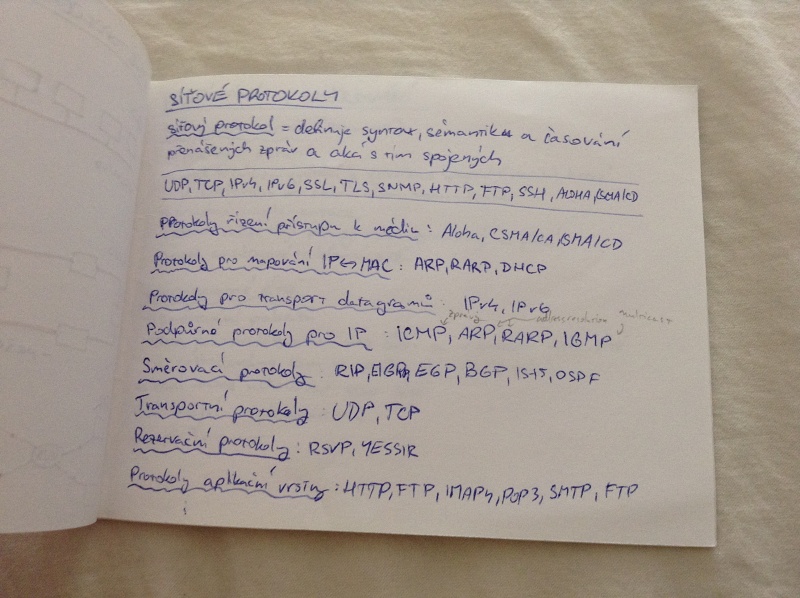 SÍŤOVÉ PROTOKOLY
síťový protokol = definuje syntax, sémantiku a časování
přenášených zpráv a akcí s tím spojených
UDP, TCP, IPv4, IPv6, SSL, TLS, SNMP, HTTP, FTP, SSH, ALOHA, CSMA/CD
Protokoly řízení přístupu k médiu : Aloha, CSMA/CA, CSMA/CD
Protokoly pro mapování IP↔MAC : ARP, RARP, DHCP
Protokoly pro transport datagramů : IPv4, IPv6
zprávy address resolution multicast
Podpůrné protokoly pro IP : ICMP, ARP, RARP, IGMP
Směrovací protokoly : RIP, EIGRP, EGP, BGP, IS-IS, OSPF
Transportní protokoly : UDP, TCP
Rezervační protokoly : RSVP, YESSIR
Protokoly aplikační vrstvy : HTTP, FTP, IMAP4, POP3, SMTP, FTP